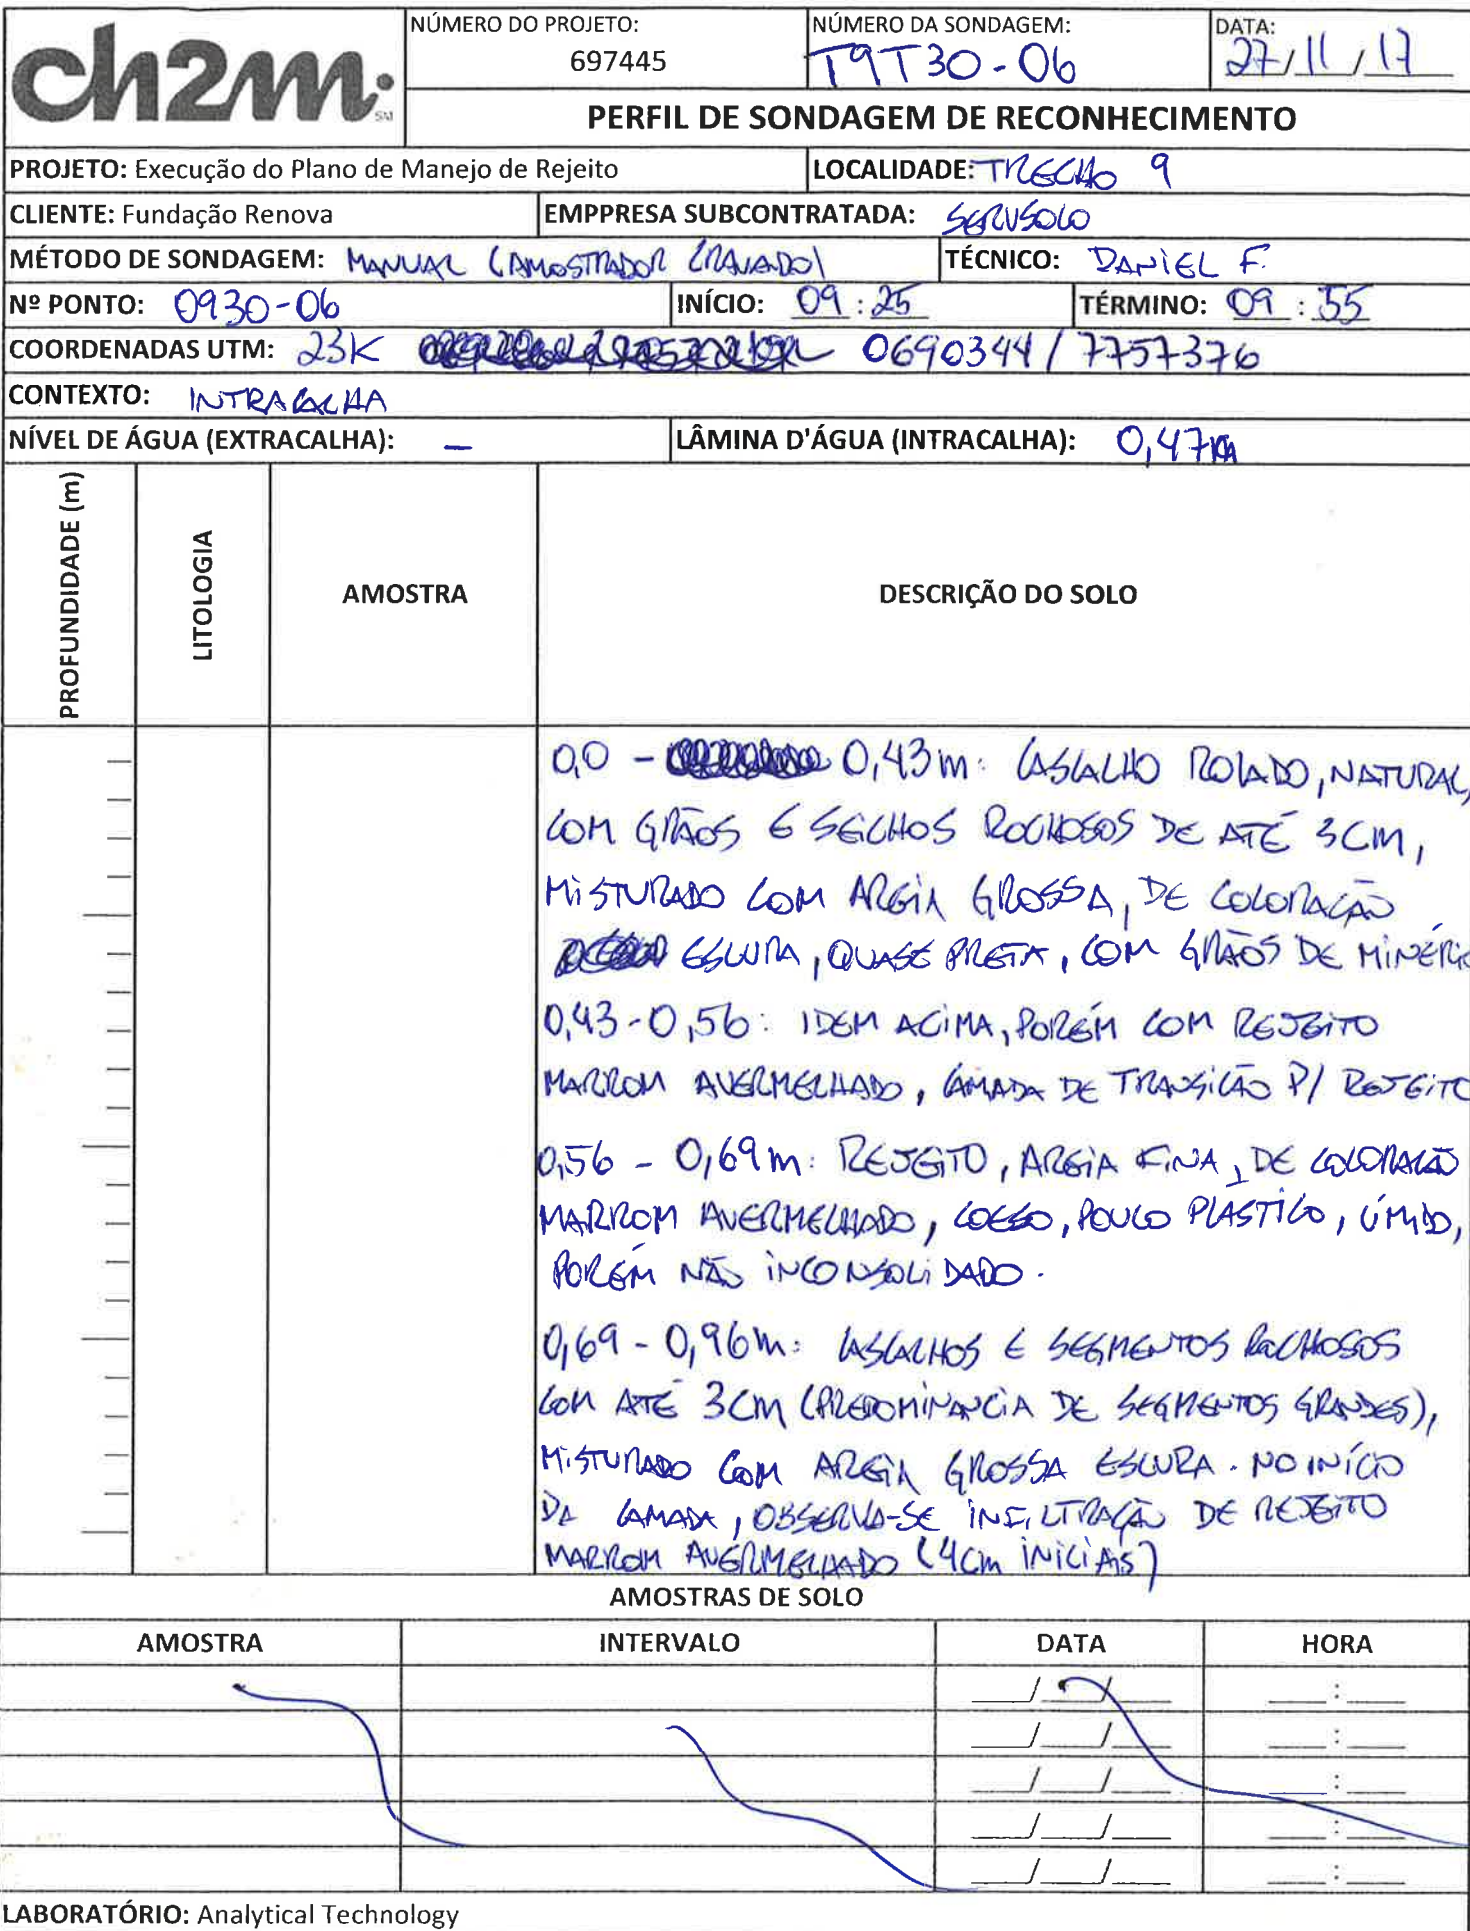 ch2m.
SM
NÚMERO DO PROJETO:
697445
NÚMERO DA SONDAGEM:
T9T30-06
DATA:
27/11/17
PERFIL DE SONDAGEM DE RECONHECIMENTO
PROJETO: Execução do Plano de Manejo de Rejeito
LOCALIDADE: TRECHO 9
CLIENTE: Fundação Renova
EMPPRESA SUBCONTRATADA: SERVSOLO
MÉTODO DE SONDAGEM: MANUAL (AMOSTRADOR CRAVADO)
TÉCNICO: DANIEL F.
Nº PONTO: 0930-06
INÍCIO: 09:25
TÉRMINO: 09:55
COORDENADAS UTM: 23K 0690344/7757376
CONTEXTO: INTRACALHA
NÍVEL DE ÁGUA (EXTRACALHA): —
LÂMINA D'ÁGUA (INTRACALHA): 0,47m
PROFUNDIDADE (m)
LITOLOGIA
AMOSTRA
DESCRIÇÃO DO SOLO
0,0 - 0,43m: CASCALHO ROLADO, NATURAL,
COM GRÃOS E SEICHOS ROCHOSOS DE ATÉ 3CM,
MISTURADO COM AREIA GROSSA, DE COLORAÇÃO
ESCURA, QUASE PRETA, COM GRÃOS DE MINÉRIO
0,43-0,56: IDEM ACIMA, PORÉM COM REJEITO
MARROM AVERMELHADO, CAMADA DE TRANSIÇÃO P/ REJEITO
0,56 - 0,69m: REJEITO, AREIA FINA, DE COLORAÇÃO
MARROM AVERMELHADO, COESO, POUCO PLÁSTICO, ÚMIDO,
PORÉM NÃO INCONSOLIDADO.
0,69 - 0,96m: CASCALHOS E SEGMENTOS ROCHOSOS
COM ATÉ 3CM (PREDOMINANCIA DE SEGMENTOS GRANDES),
MISTURADO COM AREIA GROSSA ESCURA. NO INÍCIO
DA CAMADA, OBSERVA-SE INFILTRAÇÃO DE REJEITO
MARROM AVERMELHADO (4cm INICIAIS)
AMOSTRAS DE SOLO
AMOSTRA
INTERVALO
DATA
HORA
___/___/___ ___:___
___/___/___ ___:___
___/___/___ ___:___
___/___/___ ___:___
___/___/___ ___:___
LABORATÓRIO: Analytical Technology